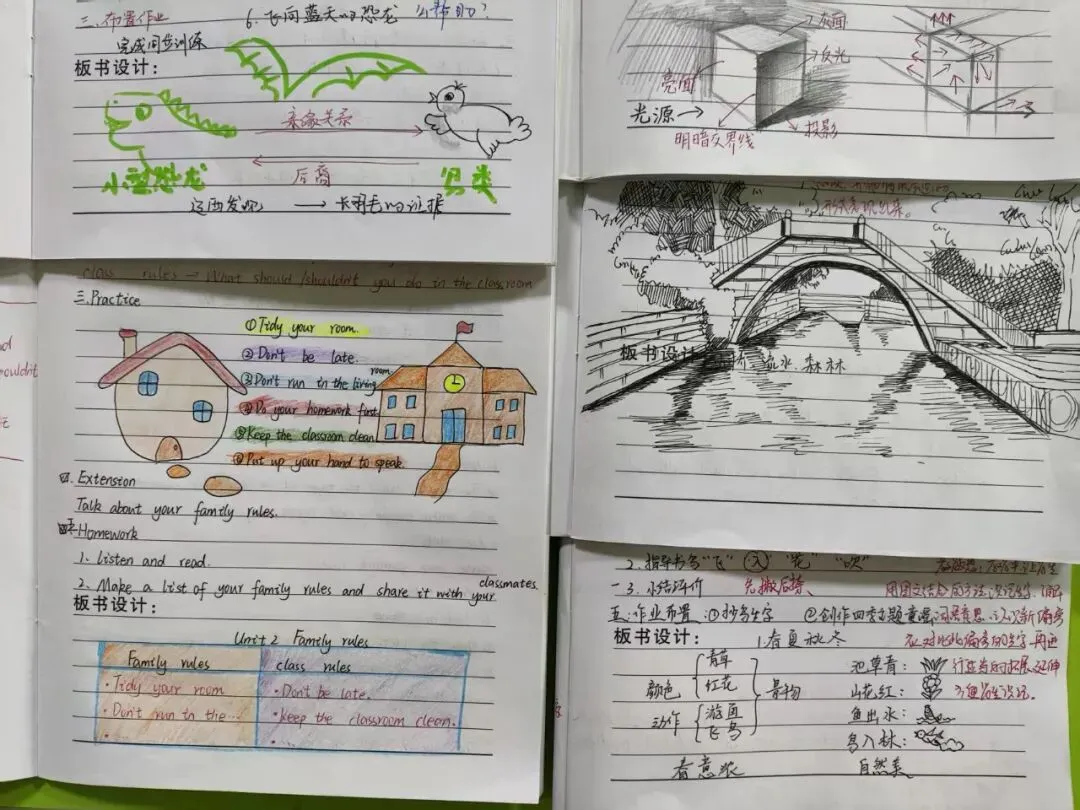 三、布置作业
6. 飞向蓝天的恐龙
完成同步训练
板书设计：
亲缘关系
后裔
小型恐龙
鸟类
辽西发现 → 长羽毛的证据
灰面
反光
亮面
光源→
明暗交界线
投影
class rules → What should/shouldn't you do in the classroom
三.Practice
①Tidy your room.
②Don't be late.
③Don't run in the living room.
④Do your homework first
⑤Keep the classroom clean
⑥Put up your hand to speak.
四. Extension
Talk about your family rules.
五.Homework
1. Listen and read.
2. Make a list of your family rules and share it with your classmates.
板书设计：
Unit 2 Family rules
Family rules
class rules
·Tidy your room
·Don't be late.
·Don't run in the...
·keep the classroom clean.
板书设计
流水 森林
2. 指导书写"飞""入""花"
3. 小结评价
五：作业布置 ①抄写生字
板书设计：
1.春夏秋冬
颜色
青草
红花
景物
动作
游鱼
飞鸟
池草青：
山花红：
鱼出水：
鸟入林：
春意浓
自然美